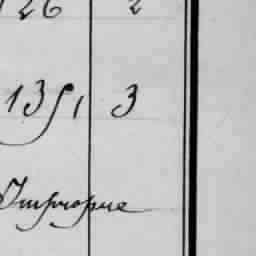 126 2
1351 3
Impropue